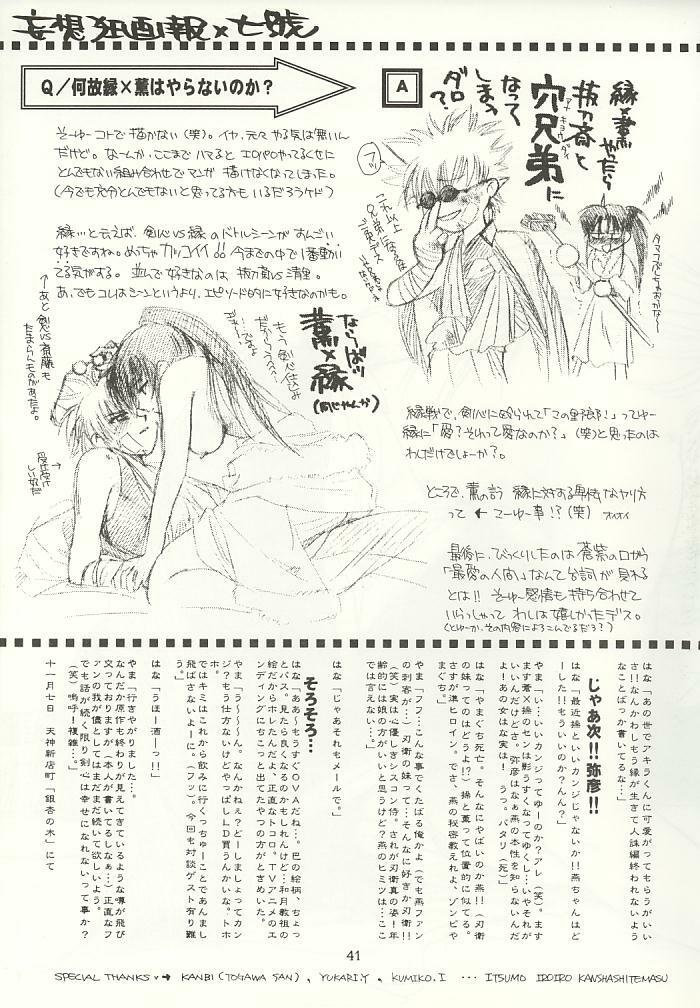 妄想狂画報×七號
Q／何故縁×薫はやらないのか？
A
縁×薫やったら
抜刀斎と
穴兄弟に
アナキョウダイ
なって
しまう
ダロ？
フッ
これ以上
兄弟になるのは
ご免デス
そーゆーコトで描かない（笑）。イヤ、元々やる気は無いん
だけど。なーんか、ここまでハマるとエロパロやってるくせに
とんでもない組み合わせでマンガ描けなくなってしまった。
（今でも充分とんでもないと思ってる方もいるだろうケド）
縁…と云えば、剣心VS縁のバトルシーンがすんごい
好きですね。めっちゃカッコイイ!!今までの中で1番動い
てる気がする。並んで好きなのは抜刀斎VS清里。
あ、でもコレはシーンというより、エピソード的に好きなのかも。
←あと剣心VS斎藤も
たまらんものがあったよ。
ならばッ
薫×縁
（同じやんか）
もう剣心仕込み
縁戦で、剣心に殴られて「この野郎！」ってゆー
縁に「愛？それって愛なのか？」（笑）と思ったのは
わしだけでしょーか？。
ところで、薫の言う縁に対する卑怯なヤリ方
って ← こーゆー事!?（笑）オイオイ
最後に、びっくりしたのは蒼紫の口から
「最愛の人間」なんて台詞が見れる
とは!! そーゆー感情も持ち合わせて
いらっしゃってわしは嬉しかったデス。
（とゆーか、その内容によろこんでるだろう？）
はな「あの世でアキラくんに可愛がってもらうがいい
さ!!なんかわしもう縁が生きて人誅編終われないよう
なことばっか書いてるな…」
じゃあ次!!弥彦!!
はな「最近操といいカンジじゃないか!!燕ちゃんはど
ーした!!もういいのか？んん？」
やま「い…いいカンジってゆーのか？アレ（笑）。ます
ます蒼×操のセンは影うすくなってゆくし…いやそれが
いいんだけどさ。弥彦はなぁ燕の本性を知らないんだ
よ！あの女はなぁ実は…うっ。バタリ（死）」
はな「やまぐち死亡。そんなにやばいのか燕!!（刃衛
の妹ってのはどうよ!?）操と薫って位置的に似てる。
さすが準ヒロイン。でさ、燕の秘密教えれよ、ゾンビや
やま「フフ…こんな事でくたばる俺かよ（でも燕ファン
の刺客が…）刃衛の妹って…そんなに好きか刃衛
（笑）実は心優しきシスコン侍。されが刃衛真の姿！年
齢的には娘の方がいいと思うけど？燕のヒミツは…ここ
では言えない…」
はな「じゃあそれもメールで。」
そろそろ…
はな「ああ～もうすぐOVAだね…。巴の絵柄、ちょっ
とパス。見たら良くなるのかもしれんけど…和月教祖の
絵だからホレたんだよ、正直なトコロ。TVアニメのエ
ンディングにちこっと出てたやつの方がときめいた。
やま「う～～～ん。なんかねぇ？どーしましょってカン
ジ？もう仕方ないけどやっぱしLD買うんかいな。トホ
ホ。
ではキミはこれから飲みに行くっちゅーことであんまし
飛ばさないよーに。（フッ）。今回も対談ゲスト有り難
う。」
はな「うほー酒ーっ!!」
やま「行きやがりました…。
なんだか原作も終わりが見えてきているような噂が飛び
交っておりますが（本人が書いてるしなぁ…）正直なフ
ァンの我が儘としてはまだまだ続いて欲しいよう。
でも話が続く限り剣心は幸せになれないって事か？
（笑）嗚呼！複雑…。」
十一月七日　天神新店町「銀杏の木」にて
41
SPECIAL THANKS ♥→ KANBI (TOGAWA SAN) , YUKARI.Y , KUMIKO.I … ITSUMO IROIRO KANSHASHITEMASU